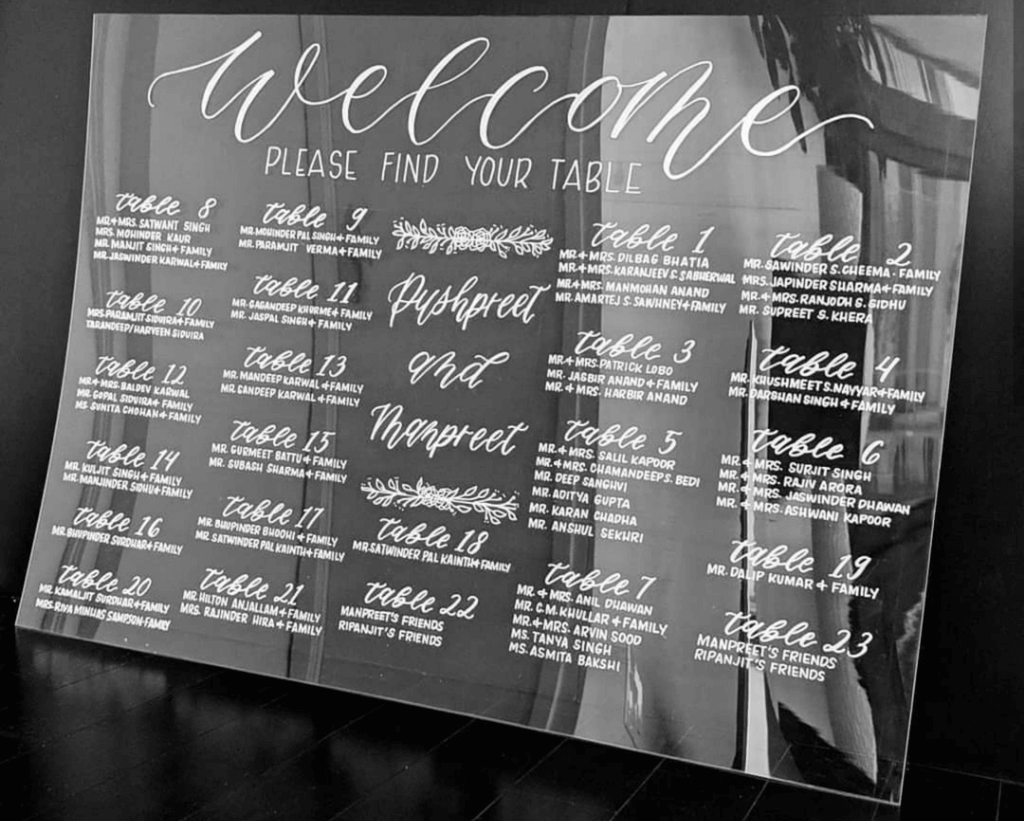 welcome
PLEASE FIND YOUR TABLE
table 8
MR.+MRS. SATWANT SINGH
MRS. MOHINDER KAUR
MR. MANJIT SINGH + FAMILY
MR. JASWINDER KARWAL + FAMILY
table 9
MR. MOHINDER PAL SINGH + FAMILY
MR. PARAMJIT VERMA + FAMILY
table 10
MRS. PARAMJIT SIDVIRA + FAMILY
TARANDEEP/HARVEEN SIDVIRA
table 11
MR. GAGANDEEP KHURME + FAMILY
MR. JASPAL SINGH + FAMILY
table 12
MR.+MRS. BALDEV KARWAL
MR. GOPAL SIDVIRA + FAMILY
MS. SUNITA CHOHAN + FAMILY
table 13
MR. MANDEEP KARWAL + FAMILY
MR. SANDEEP KARWAL + FAMILY
table 14
MR. KULJIT SINGH + FAMILY
MR. MANJINDER SIDHU + FAMILY
table 15
MR. GURMEET BATTU + FAMILY
MR. SUBASH SHARMA + FAMILY
table 16
MR. BHUPINDER SURDHAR + FAMILY
table 17
MR. BHUPINDER BHOOHI + FAMILY
MR. SATWINDER PAL KAINTH + FAMILY
table 20
MR. KAMALJIT SURDHAR + FAMILY
MRS. RIVA MINHAS SAMPSON-FAMILY
table 21
MR. HILTON ANJALLAM + FAMILY
MRS. RAJINDER HIRA + FAMILY
Pushpreet
and
Manpreet
table 18
MR. SATWINDER PAL KAINTH + FAMILY
table 22
MANPREET'S FRIENDS
RIPANJIT'S FRIENDS
table 1
MR.+MRS. DILBAG BHATIA
MR.+MRS. KARANJEEV S. SABHERWAL
MR.+MRS. MANMOHAN ANAND
MR. AMARTEJ S. SAWHNEY + FAMILY
table 2
MR. SAWINDER S. CHEEMA - FAMILY
MRS. JAPINDER SHARMA + FAMILY
MR.+MRS. RANJODH S. SIDHU
MR. SUPREET S. KHERA
table 3
MR.+MRS. PATRICK LOBO
MR. JAGBIR ANAND + FAMILY
MR.+MRS. HARBIR ANAND
table 4
MR. KHUSHMEET S. NAYYAR + FAMILY
MR. DARSHAN SINGH + FAMILY
table 5
MR.+MRS. SALIL KAPOOR
MR.+MRS. CHAMANDEEP S. BEDI
MR. DEEP SANGHVI
MR. ADITYA GUPTA
MR. KARAN CHADHA
MR. ANSHUL SEKHRI
table 6
MR.+MRS. SURJIT SINGH
MR.+MRS. RAJIV ARORA
MR.+MRS. JASWINDER DHAWAN
MR.+MRS. ASHWANI KAPOOR
table 7
MR.+MRS. ANIL DHAWAN
MR. C.M. KHULLAR + FAMILY
MR.+MRS. ARVIN SOOD
MS. TANYA SINGH
MS. ASMITA BAKSHI
table 19
MR. DALIP KUMAR + FAMILY
table 23
MANPREET'S FRIENDS
RIPANJIT'S FRIENDS